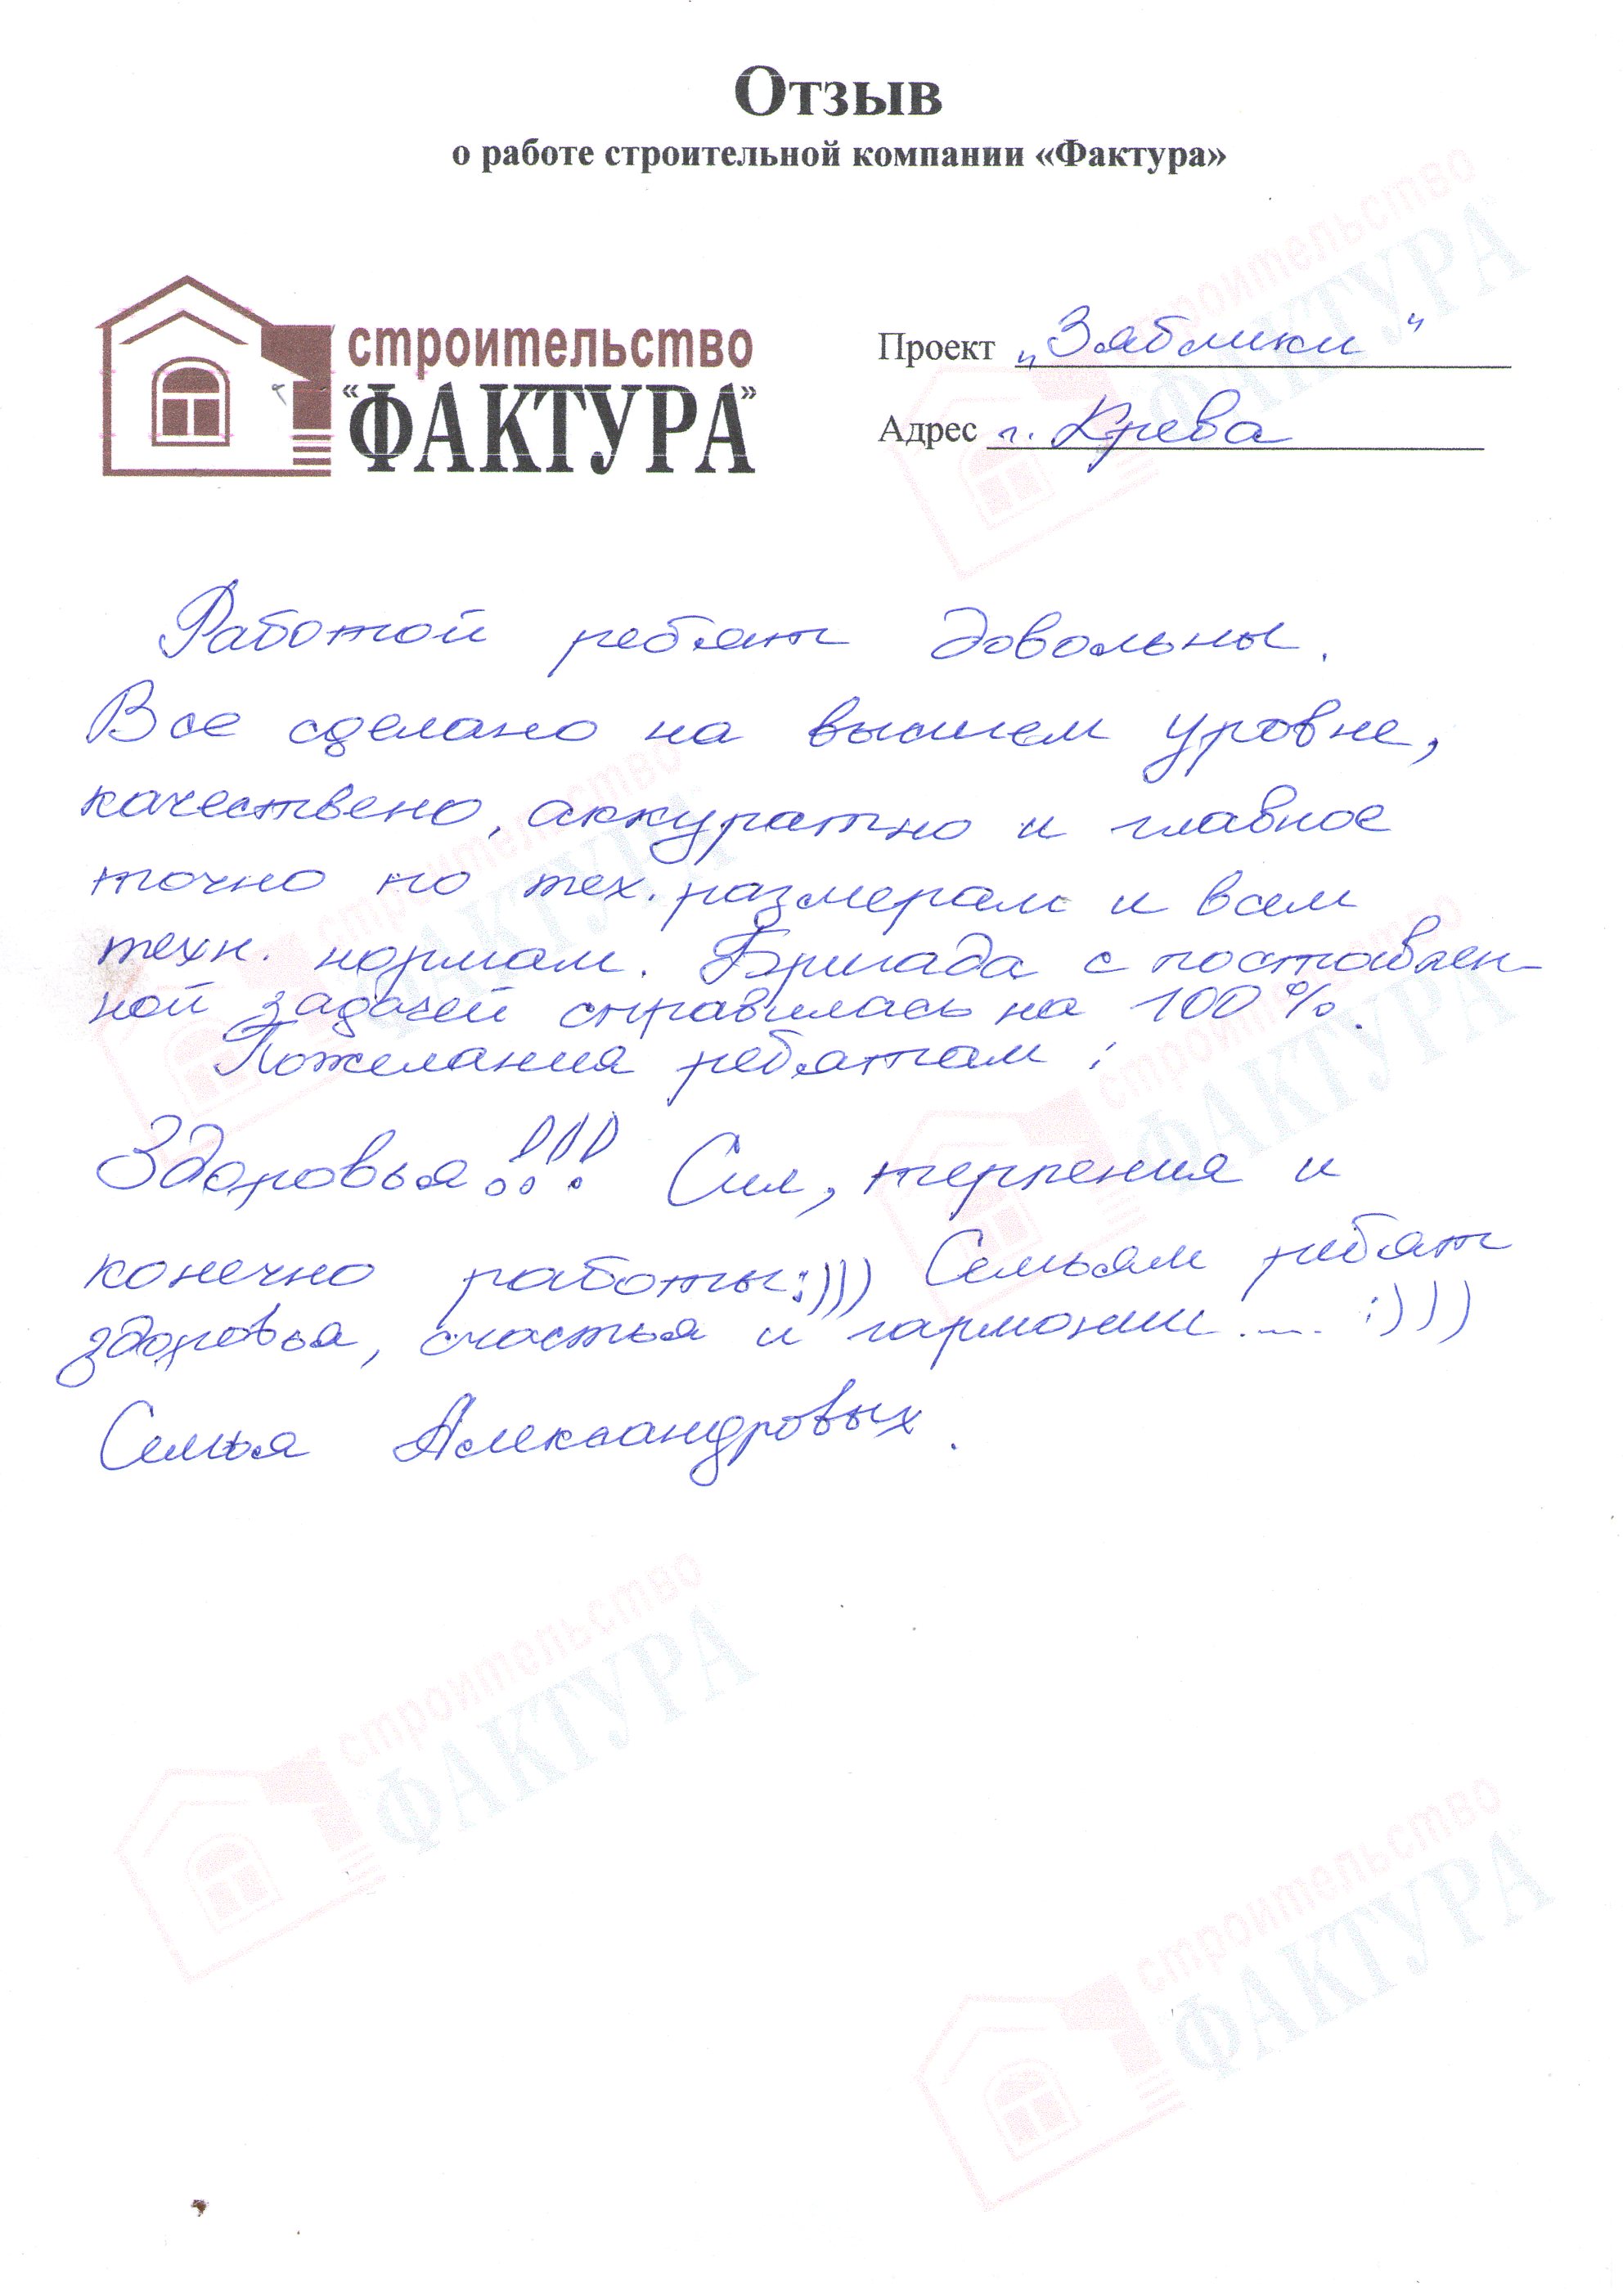 Отзыв
о работе строительной компании «Фактура»
строительство
"ФАКТУРА"
Проект "Зяблики"
Адрес г. Крева
Работой ребят довольны.
Все сделано на высшем уровне,
качествено, аккуратно и главное
точно по тех. размерам и всем
техн. нормам. Бригада с поставлен-
ной задачей справилась на 100%.
Пожелания ребятам:
Здоровья!!! Сил, терпения и
конечно работы:))) Семьям ребят
здоровья, счастья и гармонии.... :)))
Семья Александровых.